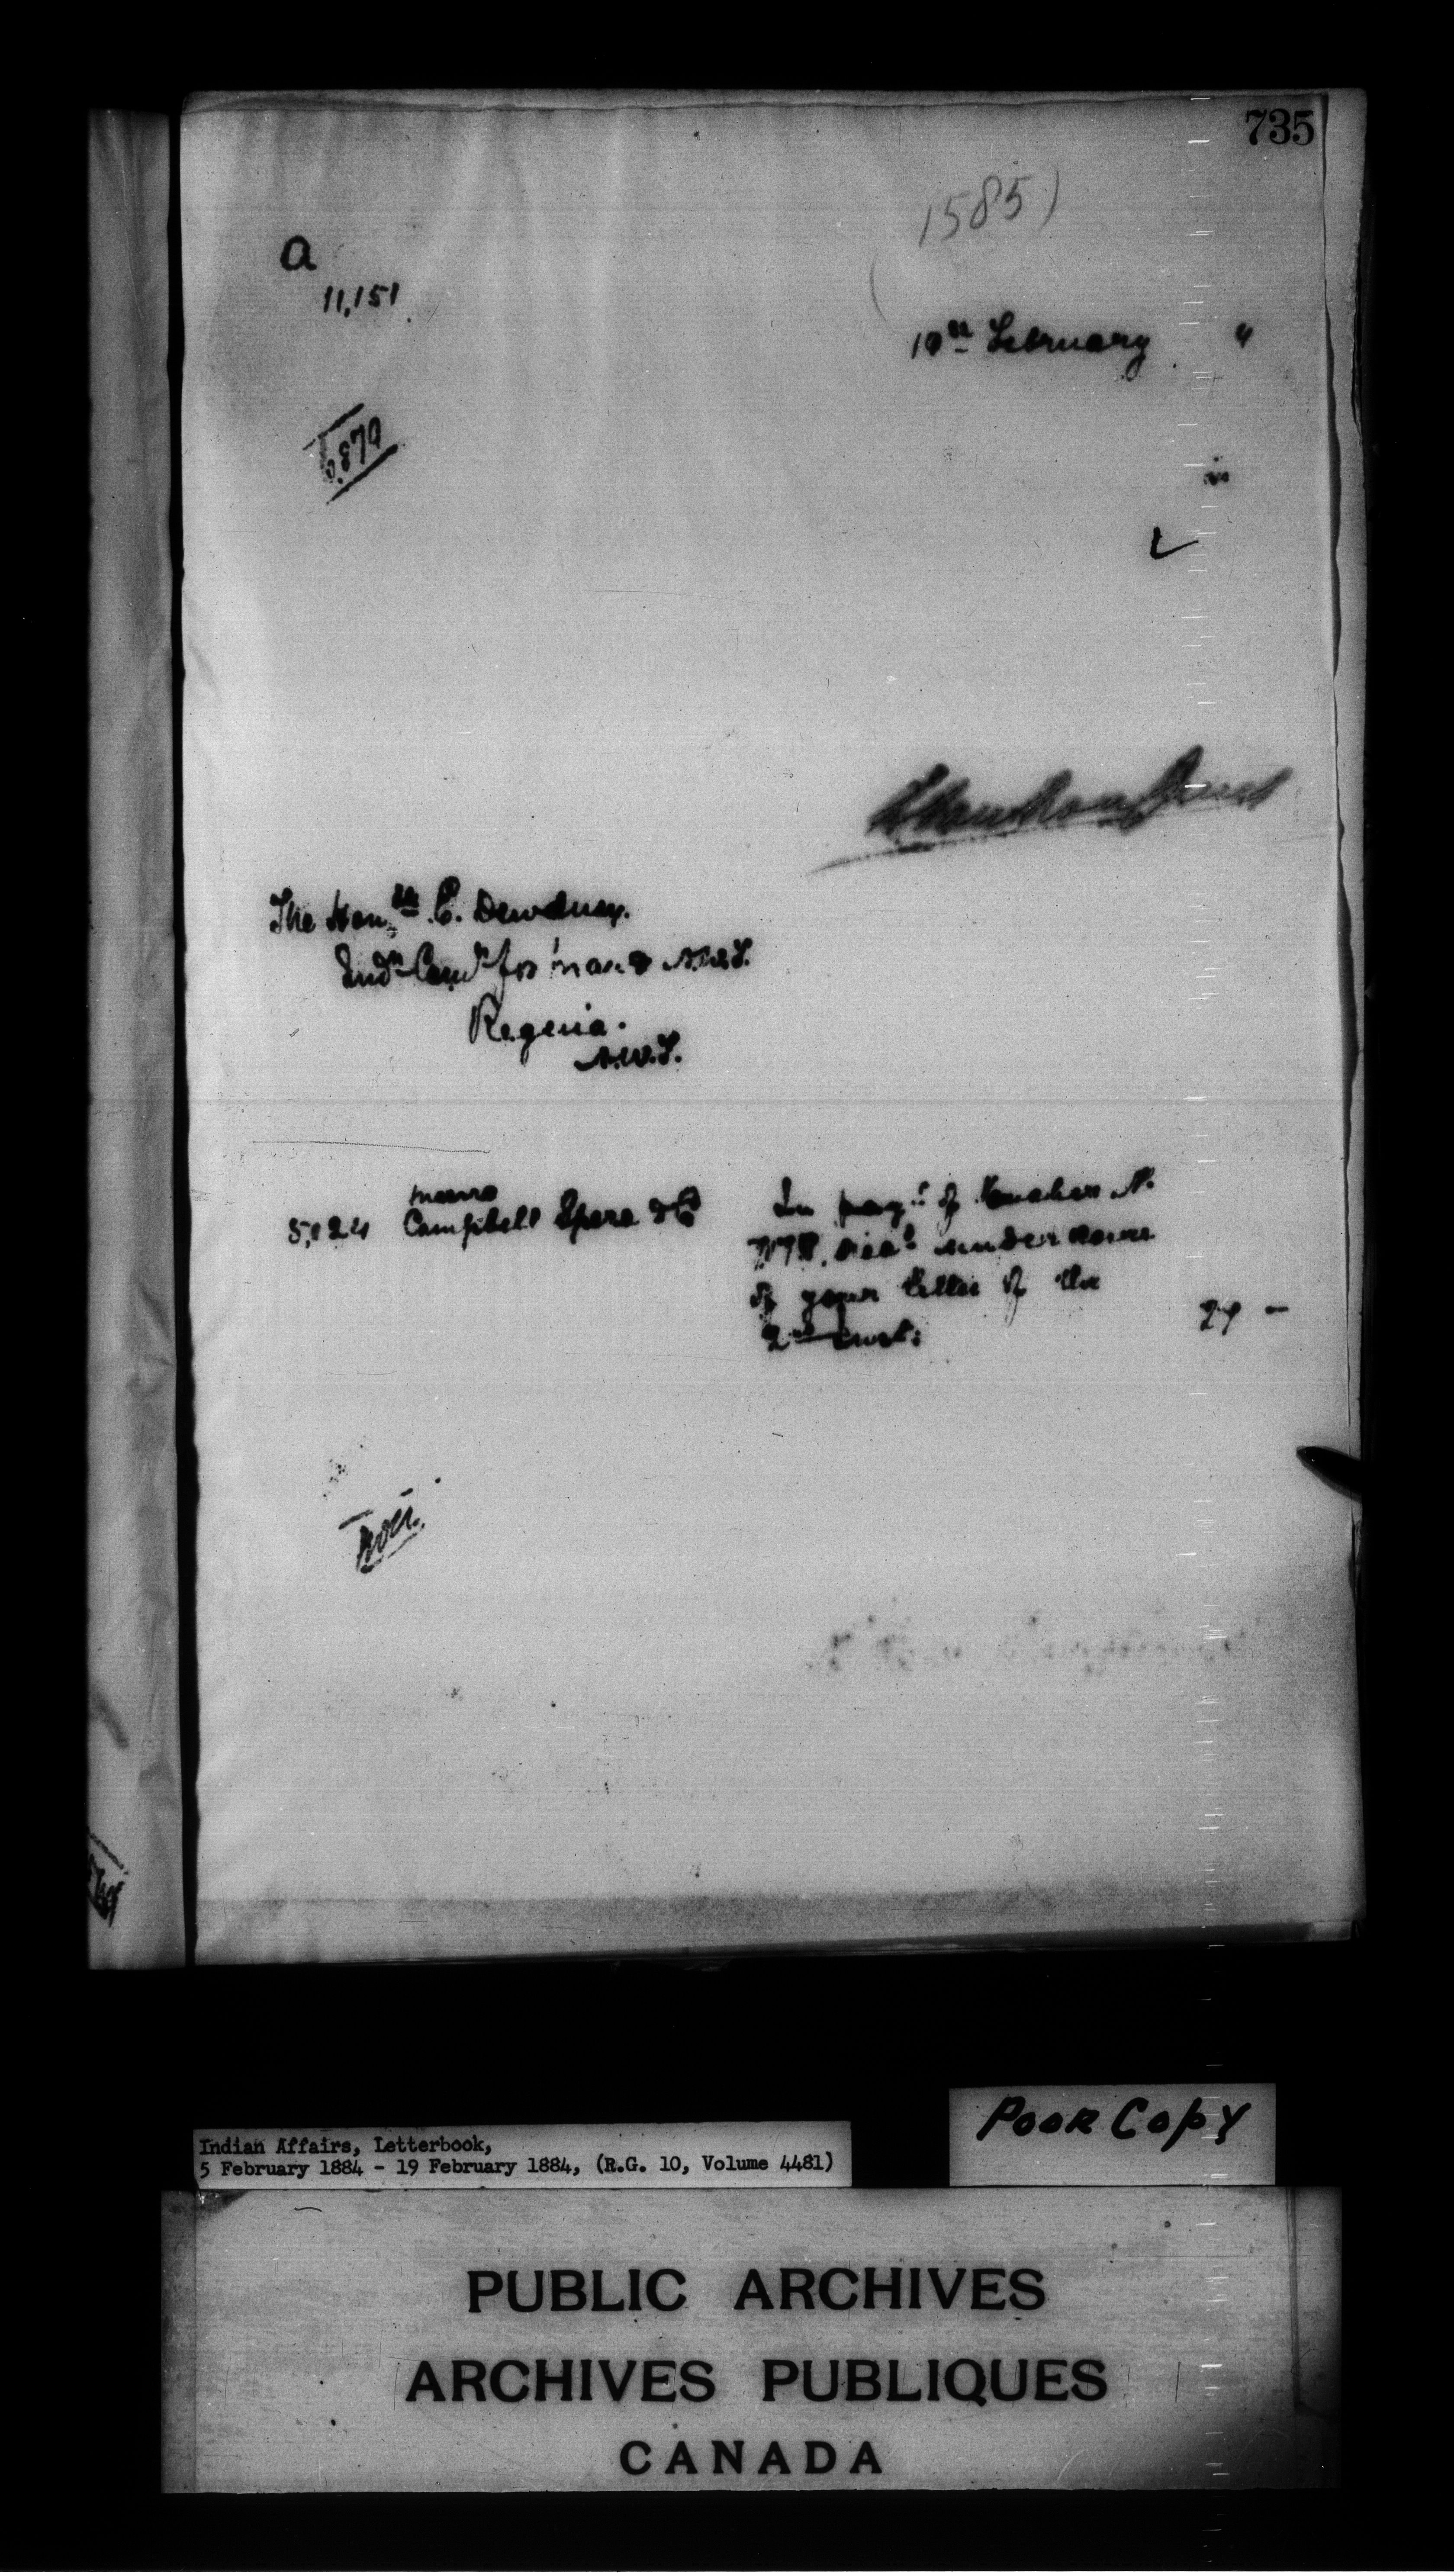 735
1585)
a
11,151
10th February "
6.870
The Honble E. Dewdney.
Indn Comr for Man. & N.W.T.
Regina.
N.W.T.
Messrs
5,024 Campbell Spera & Co
In payt of Voucher N.
recd under cover
of your letter of the
2nd inst:
Indian Affairs, Letterbook,
5 February 1884 - 19 February 1884, (R.G. 10, Volume 4481)
Poor Copy
PUBLIC ARCHIVES
ARCHIVES PUBLIQUES
CANADA